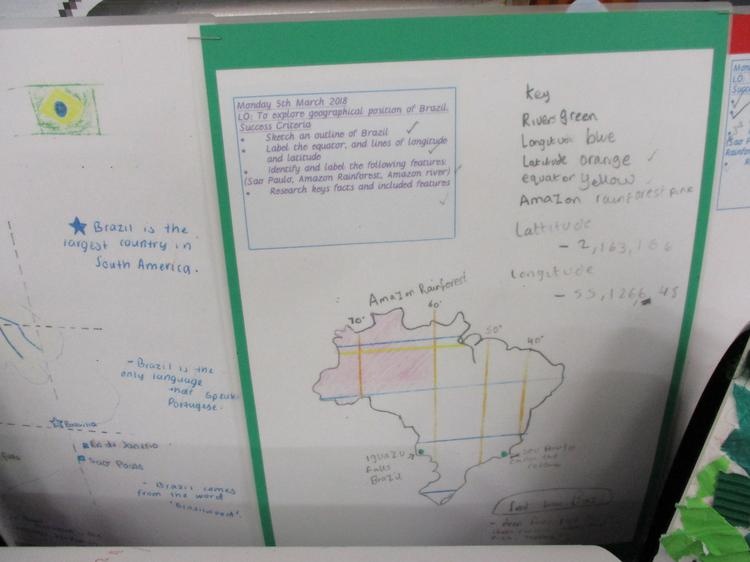 Brazil is the
largest country in
South America.
- Brazil is the
only language
Portugese.
Brasilia
Rio de Janeiro
Sao Paolo
- Brazil comes
from the word
'Brazilwood'.
Monday 5th March 2018
LO: To explore geographical position of Brazil.
Success Criteria
• Sketch an outline of Brazil
• Label the equator, and lines of longitude
and latitude
• Identify and label the following features:
(Sao Paulo, Amazon Rainforest, Amazon river)
• Research keys facts and included features
Key
River green
Longitude blue
Latitude orange
equator Yellow
Amazon rainforest pink
Lattitude
- 2,163,106
Longitude
- 55,1266,45
Amazon Rainforest
70°
60°
50°
40°
Iguazu
Falls
Brazil